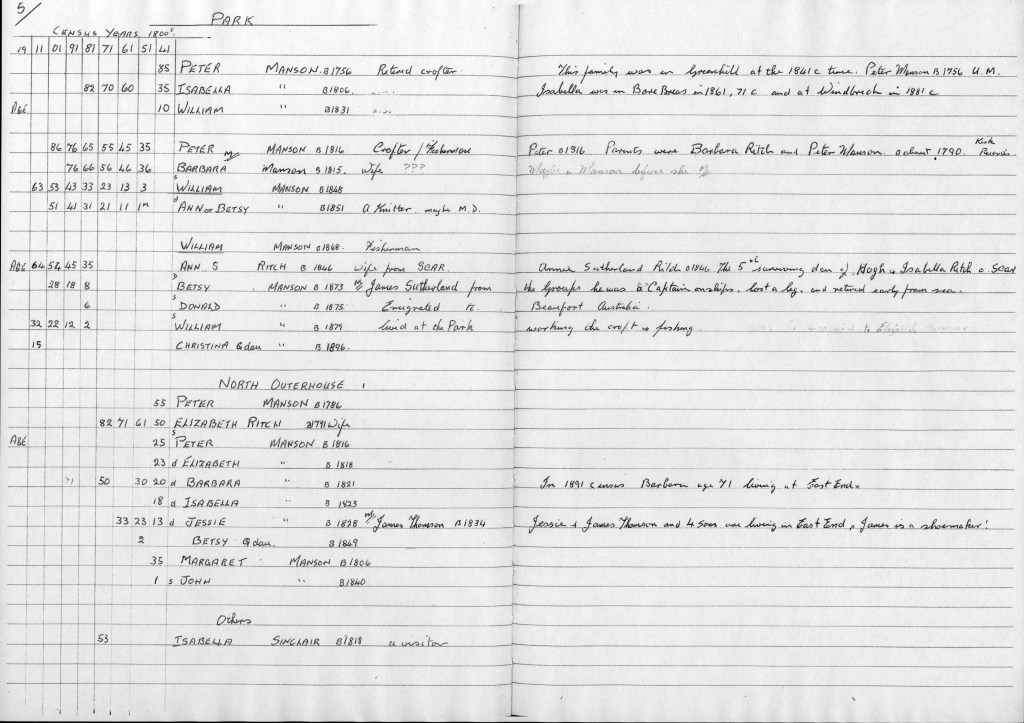 5/
PARK
CENSUS YEARS 1800s.
19 11 01 91 81 71 61 51 41
85 PETER MANSON. B1756 Retired crofter. This family was in Greenhill at the 1841 c time. Peter Manson B 1756 U.M.
82 70 60 35 ISABELLA " B1806. Isabella was in Bare Breas in 1861, 71 c and at Windbrech in 1881 c
AGE 10 WILLIAM " B1831
86 76 65 55 45 35 PETER MANSON B 1816 Crofter / Fisherman Peter B1816 Parents were Barbara Ritch and Peter Manson. B about 1790. Kirk Records
76 66 56 46 36 BARBARA Manson B 1815. Wife ??? Maybe a Manson before she m/
63 53 43 33 23 13 3 s WILLIAM MANSON B1848
51 41 31 21 11 1m d ANN or BETSY " B1851 A Knitter. maybe M.D.
WILLIAM MANSON B1848. Fisherman
AGE 64 54 45 35 ANN S RITCH B 1846 Wife from SCAR. Annie Sutherland Ritch B1846. The 5th surviving dau of Hugh & Isabella Ritch o Scar
28 18 8 D BETSY MANSON B 1873 m/ James Sutherland from the Groups he was a Captain on ships, lost a leg, and retired early from sea.
6 s DONALD " B 1875. Emigrated to. Beaufort Australia.
32 22 12 2 s WILLIAM " B 1879 lived at the Park working the croft & fishing
15 CHRISTINA Gdau " B 1896.
NORTH OUTERHOUSE
55 PETER MANSON B1786
82 71 61 50 ELIZABETH RITCH B1791 Wife
AGE 25 s PETER MANSON B 1816
23 d ELIZABETH " B 1818
71 50 30 20 d BARBARA " B 1821 In 1891 census Barbara age 71 living at East End x
18 d ISABELLA " B 1823
33 23 13 d JESSIE " B 1828 m/ James Thomson B 1834 Jessie & James Thomson and 4 sons are living in East End x James is a shoemaker!
2 BETSY Gdau. B 1849
35 MARGARET MANSON B 1806
1 s JOHN " B1840
Others
53 ISABELLA SINCLAIR B1818 a visitor